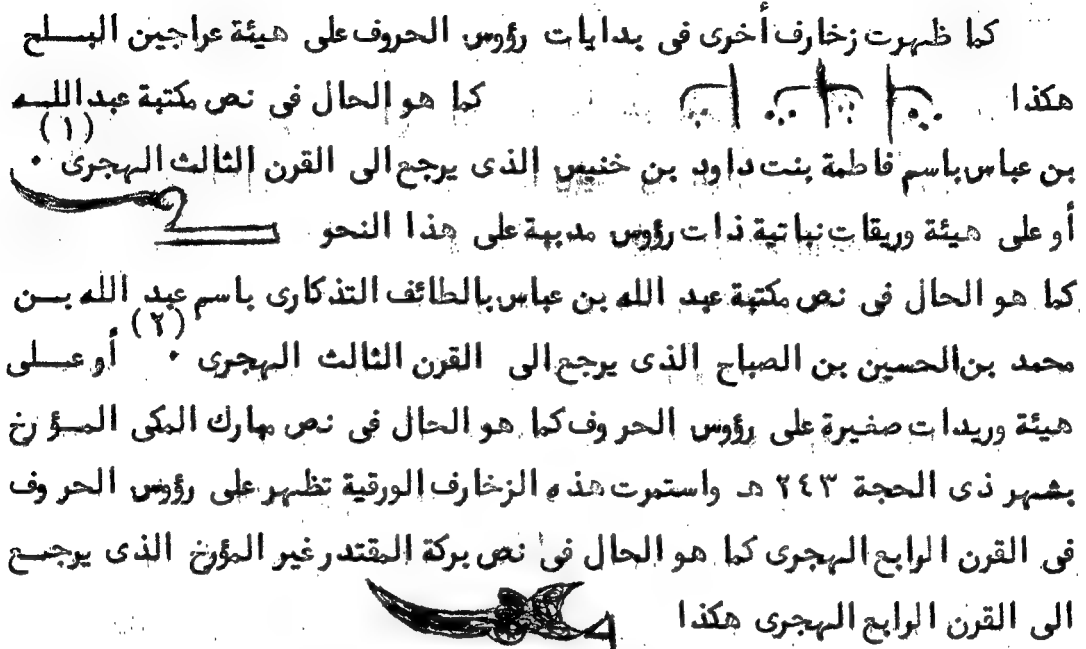 كما ظهرت زخارف أخرى فى بدايات رؤوس الحروف على هيئة عراجين البـــلح
هكذا كما هو الحال فى نص مكتبة عبد اللـــه
بن عباس باسم فاطمة بنت داود بن خنيس الذى يرجع الى القرن الثالث الهجرى (١) ٠
أو على هيئة وريقات نباتية ذات رؤوس مدببة على هذا النحو
كما هو الحال فى نص مكتبة عبد الله بن عباس بالطائف التذكارى باسم عبد الله بـــن
محمد بن الحسين بن الصباح الذى يرجع الى القرن الثالث الهجرى (٢) ٠ أو عـــلى
هيئة وريدات صغيرة على رؤوس الحروف كما هو الحال فى نص مبارك المكى المـــؤرخ
بشهر ذى الحجة ٢٤٣ هـ واستمرت هذه الزخارف الورقية تظهر على رؤوس الحروف
فى القرن الرابع الهجرى كما هو الحال فى نص بركة المقتدر غير المؤرخ الذى يرجـــع
الى القرن الرابع الهجرى هكذا